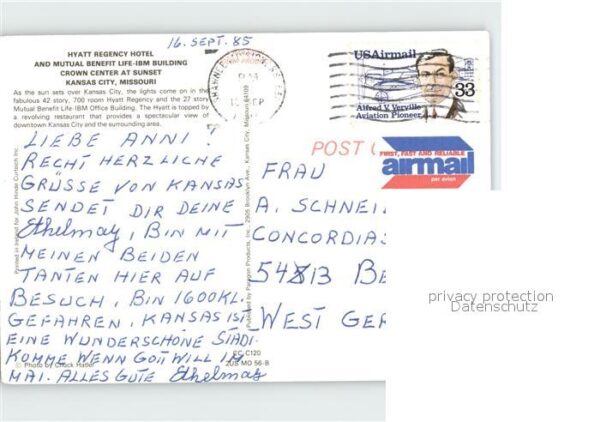 16. SEPT. 85
HYATT REGENCY HOTEL
AND MUTUAL BENEFIT LIFE-IBM BUILDING
CROWN CENTER AT SUNSET
KANSAS CITY, MISSOURI
As the sun sets over Kansas City, the lights come on in the
fabulous 42 story, 700 room Hyatt Regency and the 27 story
Mutual Benefit Life-IBM Office Building. The Hyatt is topped by
a revolving restaurant that provides a spectacular view of
downtown Kansas City and the surrounding area.
LIEBE ANNI!
RECHT HERZLICHE
GRÜSSE VON KANSAS
SENDET DIR DEINE
Ethelmay, BIN MIT
MEINEN BEIDEN
TANTEN HIER AUF
BESUCH, BIN 1600KL.
GEFAHREN, KANSAS IST
EINE WUNDERSCHÖNE STADT.
KOMME WENN GOTT WILL IM
MAI. ALLES GUTE Ethelmay
© Photo by Chuck
CC-C120
2US MO 56-B
Printed in Ireland for John Hinde Curteich Inc.
Published by Paragon Products, Inc., 2905 Brooklyn Ave., Kansas City, Missouri 64109
USAirmail
33
Alfred V. Verville
Aviation Pioneer
POST
FIRST, FAST AND RELIABLE
airmail
par avion
FRAU
A. SCHNEI
CONCORDIAS
5413 BE
WEST GER
privacy protection
Datenschutz